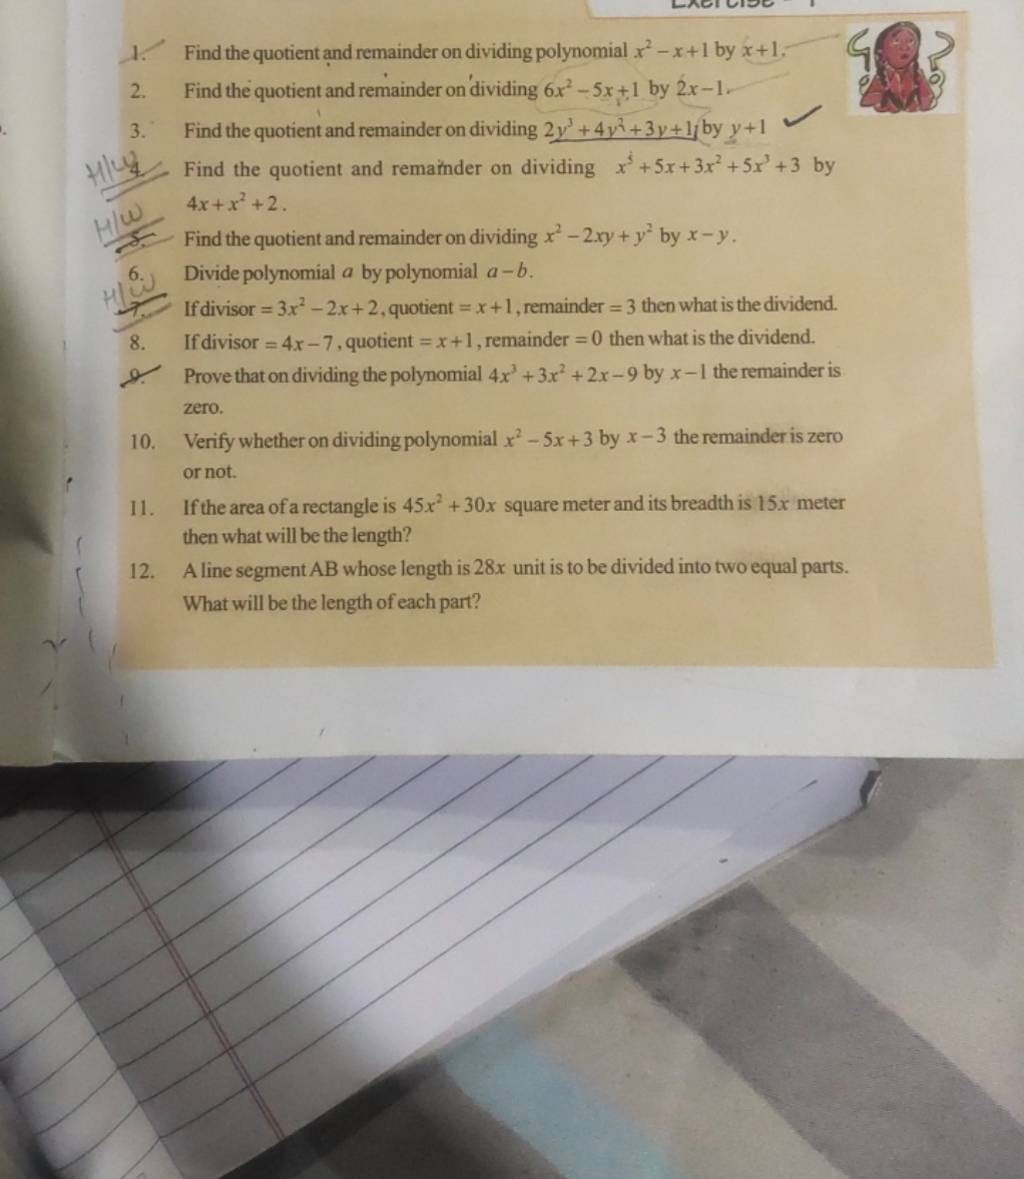 1. Find the quotient and remainder on dividing polynomial x² − x + 1 by x + 1.
2. Find the quotient and remainder on dividing 6x² − 5x + 1 by 2x − 1.
3. Find the quotient and remainder on dividing 2y³ + 4y² + 3y + 1 by y + 1
H/W 4. Find the quotient and remainder on dividing x⁵ + 5x + 3x² + 5x³ + 3 by
4x + x² + 2.
H/W 5. Find the quotient and remainder on dividing x² − 2xy + y² by x − y.
6. Divide polynomial a by polynomial a − b.
H/W 7. If divisor = 3x² − 2x + 2, quotient = x + 1, remainder = 3 then what is the dividend.
8. If divisor = 4x − 7, quotient = x + 1, remainder = 0 then what is the dividend.
9. Prove that on dividing the polynomial 4x³ + 3x² + 2x − 9 by x − 1 the remainder is
zero.
10. Verify whether on dividing polynomial x² − 5x + 3 by x − 3 the remainder is zero
or not.
11. If the area of a rectangle is 45x² + 30x square meter and its breadth is 15x meter
then what will be the length?
12. A line segment AB whose length is 28x unit is to be divided into two equal parts.
What will be the length of each part?